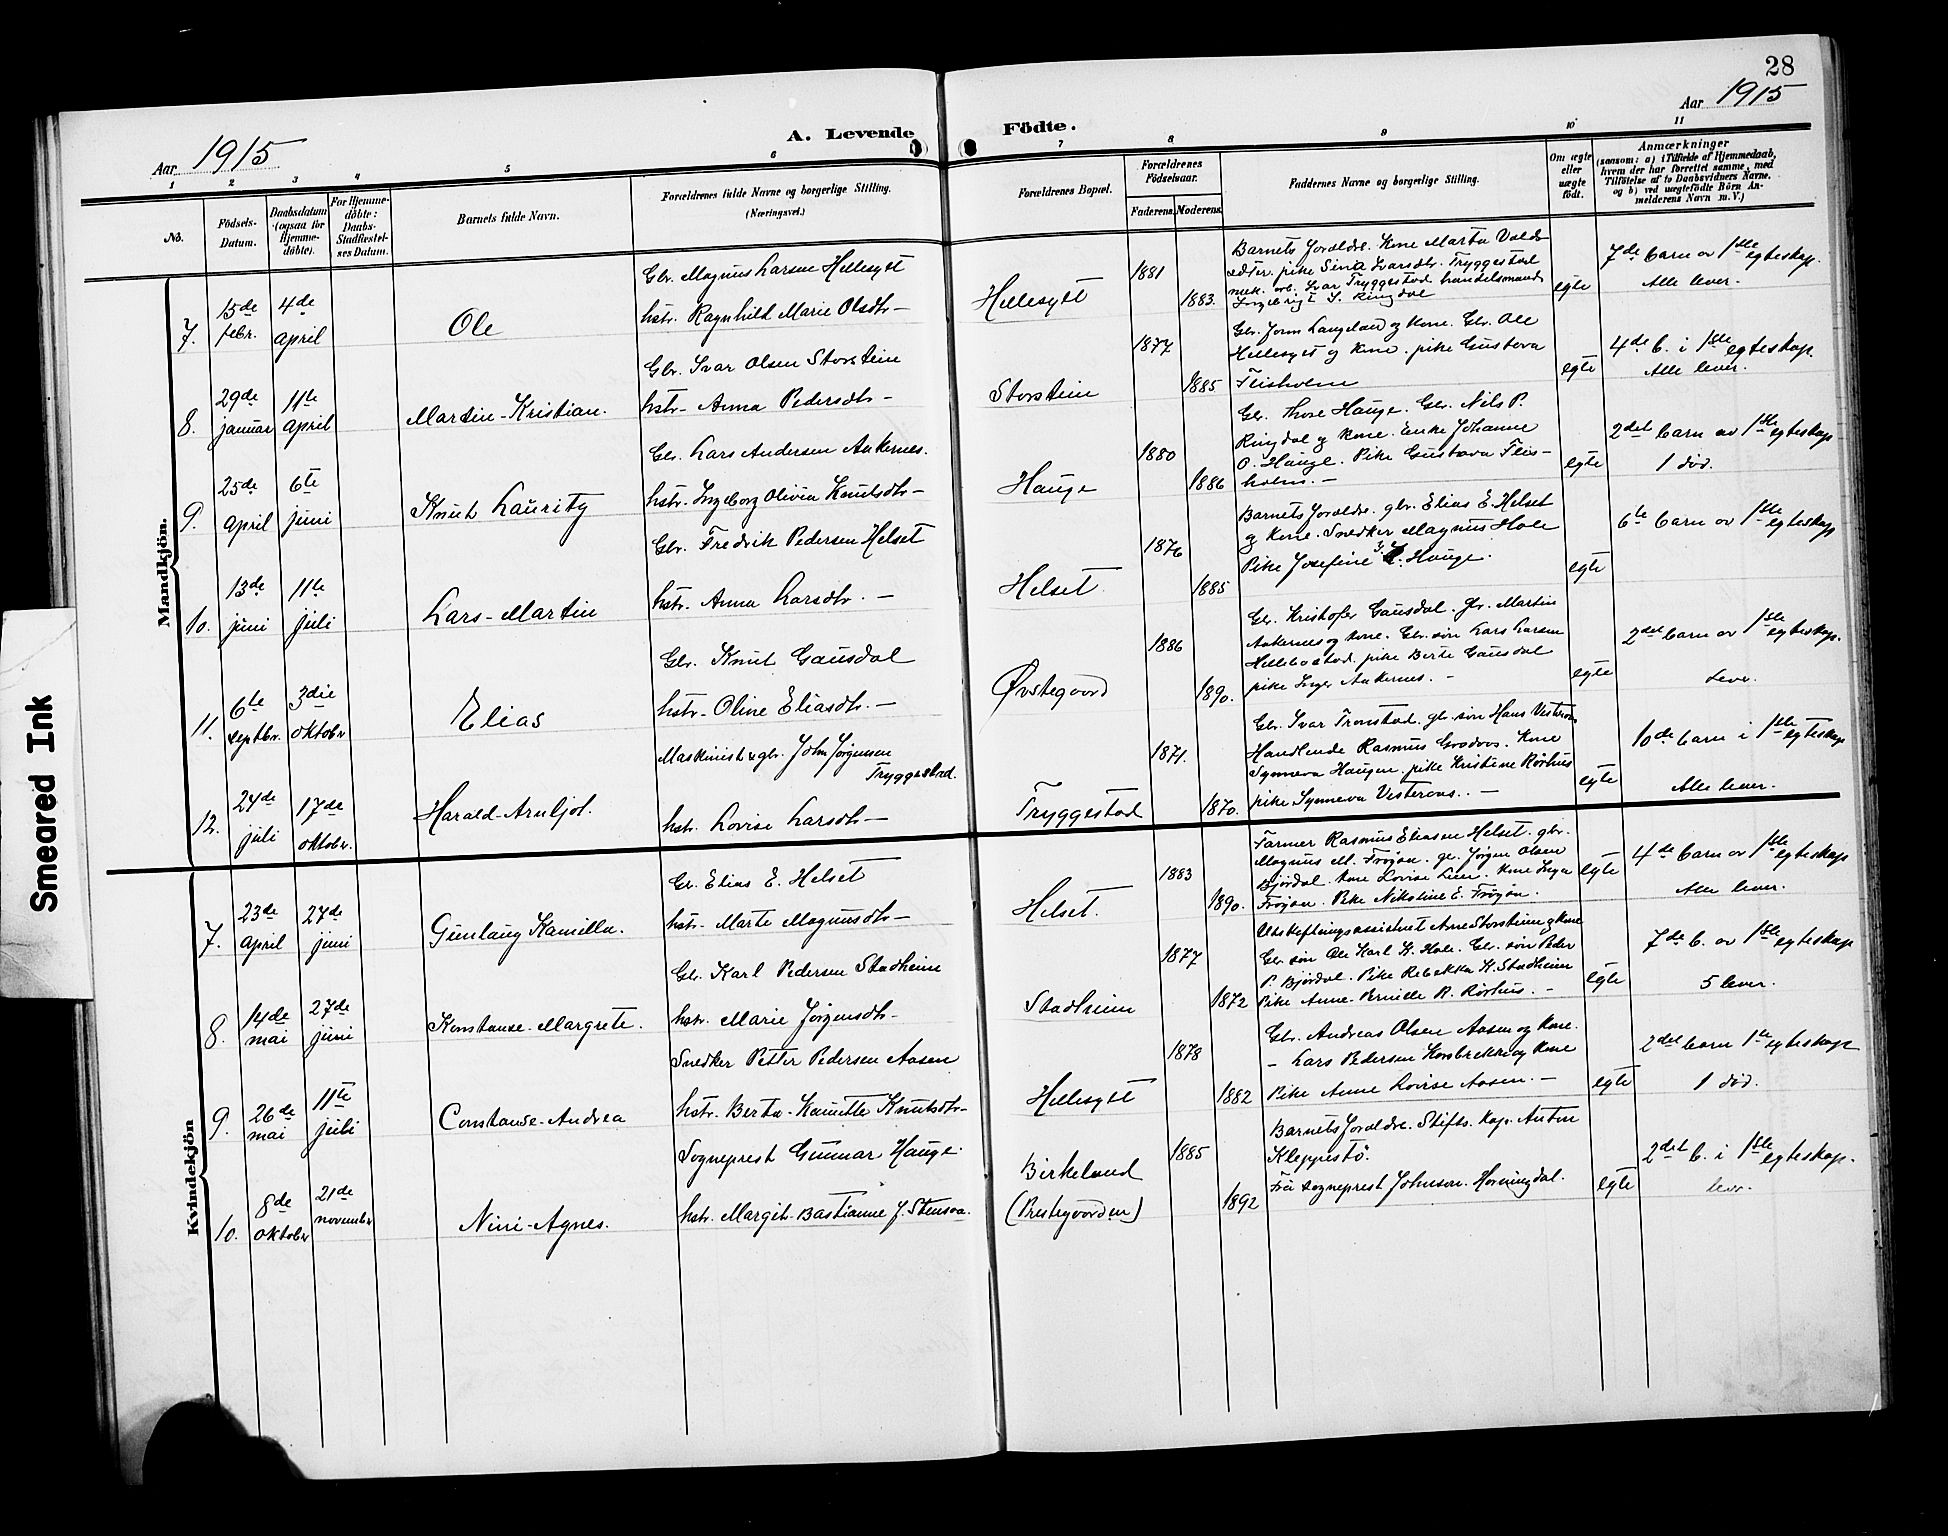 28
Aar 1915
Aar 1915
A. Levende Födte.
1 2 3 4 5 6 7 8 9 10 11
No.
Födsels-Datum.
Daabsdatum (ogsaa for Hjemme-döbte).
For Hjemme-döbte: Daabs-Stadfæstel-ses Datum.
Barnets fulde Navn.
Forældrenes fulde Navne og borgerlige Stilling.
(Næringsvei.)
Forældrenes Bopæl.
Forældrenes Födselsaar.
Faderens. Moderens.
Faddernes Navne og borgerlige Stilling.
Om ægte eller uægte födt.
Anmærkninger
(saasom: a) i Tilfælde af Hjemmedaab,
hvem der har forrettet samme, med
Tilföielse af to Daabsvidners Navne.
og b) ved uægtefödte Börn An-
melderens Navn m. V.)
Mandkjön.
7. 15de febr. 4de april
Ole
Gbr. Magnus Larsen Hellesylt
hstr. Ragnhild Marie Olsdtr. —
Hellesylt
1881
1883.
Barnets foreldre. Kone Marta Valds-
ædter. pike Sina Ivarsdtr. Tryggestad
mek. arb. Ivar Tryggestad handelsmand
Ingebrigt S. Ringdal
egte
7de barn av 1ste egteskap.
Alle lever.
8. 29de januar 11te april
Martin-Kristian.
Gbr. Ivar Olsen Storstein
hstr. Anna Pedersdtr. —
Storstein
1877
1885
Gbr. Jonn Langeland og kone. Gbr. Ole
Hellesylt og kone. pike Gustava
Fliskolm
egte
4de b. i 1ste egteskap.
Alle lever.
9. 25de april 6te juni
Knut Lauritz
Gbr. Lars Andersen Aakernes.
hstr. Ingeborg Olivia Knutsdtr. —
Hauge
1880
1886
Gbr. Thore Hauge. Gbr. Nils P.
Ringdal og kone. Enke Johanne
O. Hauge. Pike Gustava Flis-
holm. —
egte
2det barn av 1ste egteskap
1 död.
10. 13de juni 11te juli
Lars-Martin
Gbr. Fredrik Pedersen Helset
hstr. Anna Larsdtr. —
Helset
1876
1885
Barnets foreldre. gbr. Elias E. Helset
og kone. Snedker Magnus Hole
Pike Josefine Hauge.
egte
6te barn av 1ste egteskap
11. 6te septbr. 3die oktobr
Elias
Gbr. Knut Gausdal
hstr. Oline Eliasdtr. —
Øvstegaard
1886
1890.
Gbr. Kristofer Gausdal. gbr. Martin
Aakernes og kone. Gbr. søn Lars Larsen
Hellebostad. pike Berte Gausdal
pike Inger Aakernes. —
egte
2det barn av 1ste egteskap.
Lever.
12. 24de juli 17de oktobr.
Harald-Arnljot.
Maskinist & gbr. John Jørgensen
Tryggestad.
hstr. Lovise Larsdtr —
Tryggestad
1871.
1870.
Gbr. Ivar Tronstad. gbr. søn Hans Vesteraas
Handlende Rasmus Kone
Synneva Haugen. pike Kristine Rørhus
pike Synneva Vesteraas. —
egte
10de barn i 1ste egteskap
Alle lever.
Kvindekjön
7. 23de april 27de juni
Gunlaug Kamilla.
Gbr. Elias E. Helset
hstr. Marte Magnusdtr —
Helset.
1883
1890.
Farmer Rasmus Eliasen Helset. gbr.
Magnus M. Frøjsa. gbr. Jørgen Olsen
Bjørdal. kone Lovise Lien. Kone Inga
Frøjsa. Pike Nikoline E. Frøjsa.
egte
4de barn av 1ste egteskap
Alle lever.
8. 14de mai 27de juni
Konstanse-Margrete.
Gbr. Karl Pedersen Stadheim
hstr. Marie Jörgensdtr —
Stadheim
1877
1872
Utskiftningsassistent Arne Storstein og kone
Gbr. søn Ole Karl K. Hole. Gbr. søn Peder
P. Bjørdal. Pike Rebekka K. Stadheim
Pike Anne-Pernille R. Rørhus. —
egte
7de b. av 1ste egteskap
5 lever.
9. 26de mai 11te juli
Constanse-Andrea
Snedker Petter Pedersen Aasen
hstr. Berta-Kanutte Knutsdtr —
Hellesylt
1878
1882
Gbr. Andreas Olsen Aasen og kone.
— Lars Pedersen Korsbrekke og kone
Pike Anne Lovise Aasen. —
egte
2det barn 1ste egteskap
1 död.
10. 8de oktobr 21de november
Nini-Agnes.
Sogneprest Gunnar Hauge.
hstr. Margit-Bastianne J. Stensaa.
Birkeland
(Prestegaarden)
1885
1892
Barnets foreldre. Stifts. kap. Anton
Kleppestø.
Fru sogneprest Johnson. Horningdal.
egte
2det b. i 1ste egteskap.
lever.
Smeared Ink